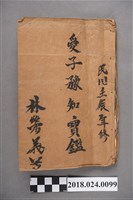 民國壬辰年修
愛子豫知寶鑑
林
2018.024.0099